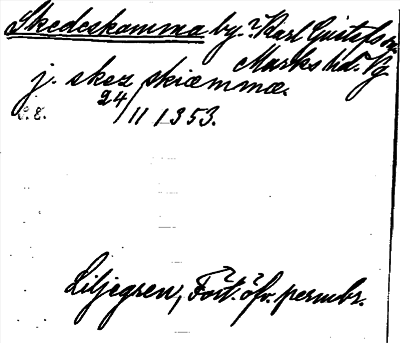 Skedeskamma by. ? Karl Gustafs sn.
Marks hd. Vg.
j. skez skiæmmæ.
24/11 1353.
Liljegren, Fört. öfv. permbr.